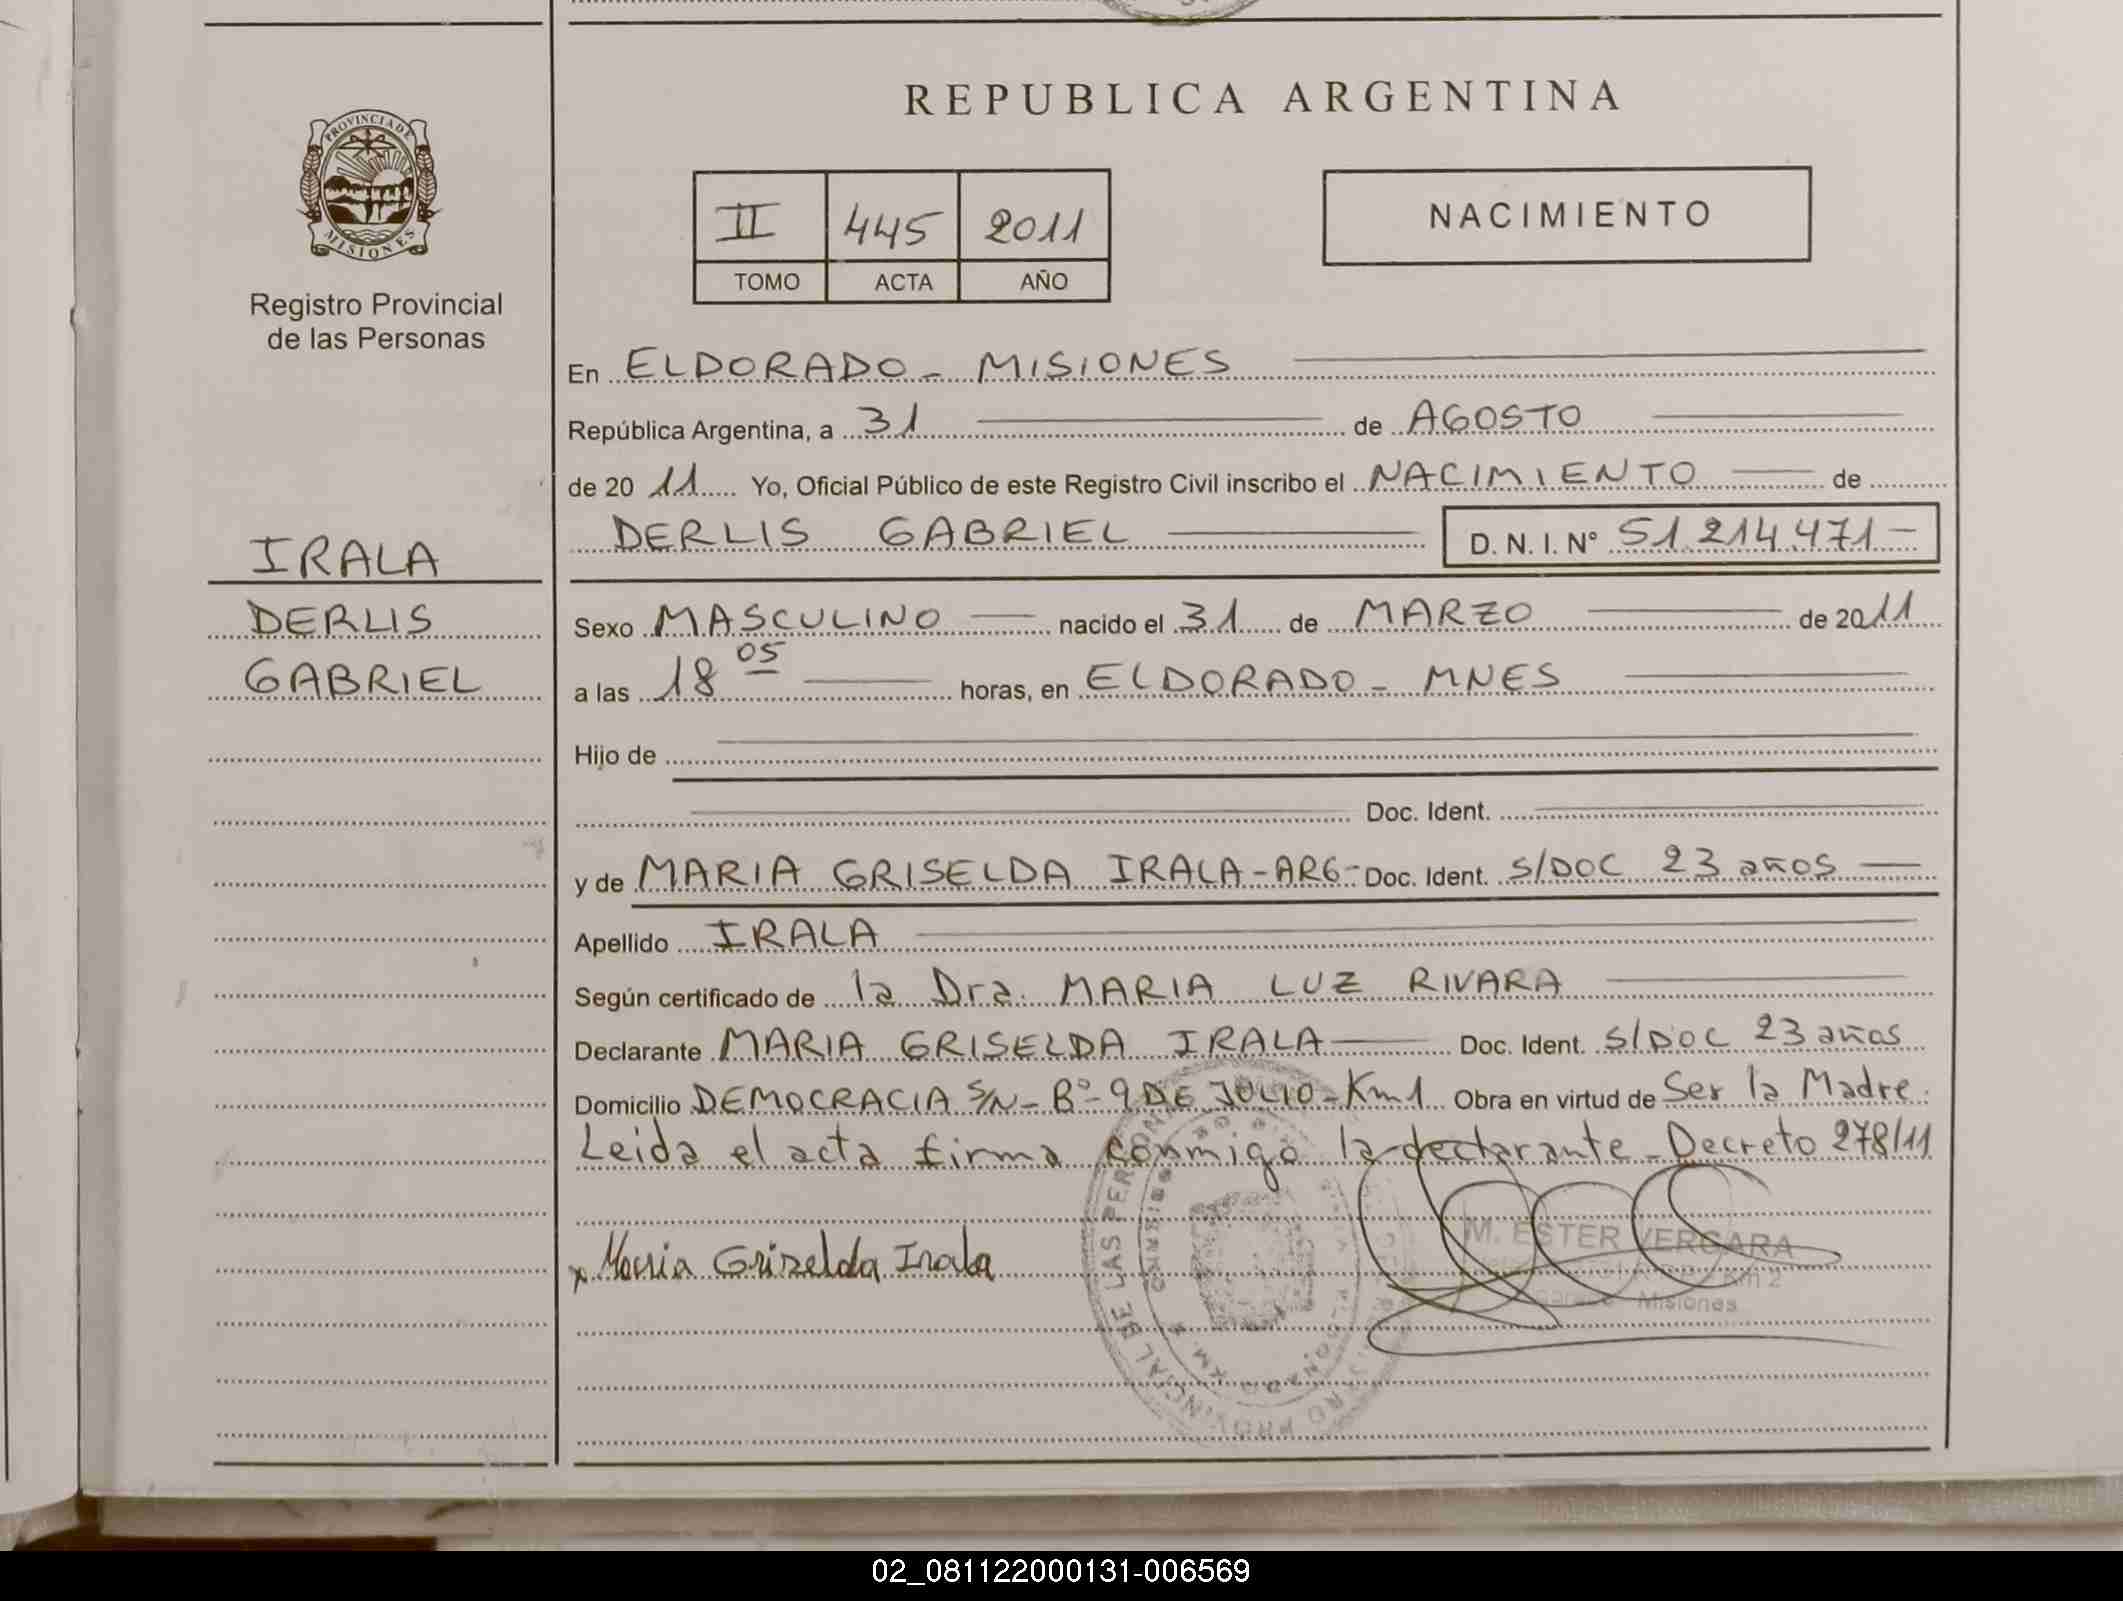 REPUBLICA ARGENTINA
PROVINCIA DE
MISIONES
Registro Provincial
de las Personas
II 445 2011
TOMO ACTA AÑO
NACIMIENTO
IRALA
DERLIS
GABRIEL
En ELDORADO - MISIONES
República Argentina, a 31 de AGOSTO
de 2011 Yo, Oficial Público de este Registro Civil inscribo el NACIMIENTO de
DERLIS GABRIEL D. N. I. N° 51.214.471 -
Sexo MASCULINO nacido el 31 de MARZO de 2011
a las 18 05 horas, en ELDORADO - MNES
Hijo de
Doc. Ident.
y de MARIA GRISELDA IRALA - ARG - Doc. Ident. S/DOC 23 años
Apellido IRALA
Según certificado de la Dra. MARIA LUZ RIVARA
Declarante MARIA GRISELDA IRALA Doc. Ident. S/DOC 23 años
Domicilio DEMOCRACIA S/N - B° - 9 DE JULIO - Km 1 Obra en virtud de Ser la Madre.
Leida el acta firma conmigo la declarante - Decreto 278/11
M. ESTER VERGARA
x Maria Grizelda Irala
Km 2
Misiones
PROVINCIAL DE LAS PER
02_081122000131-006569